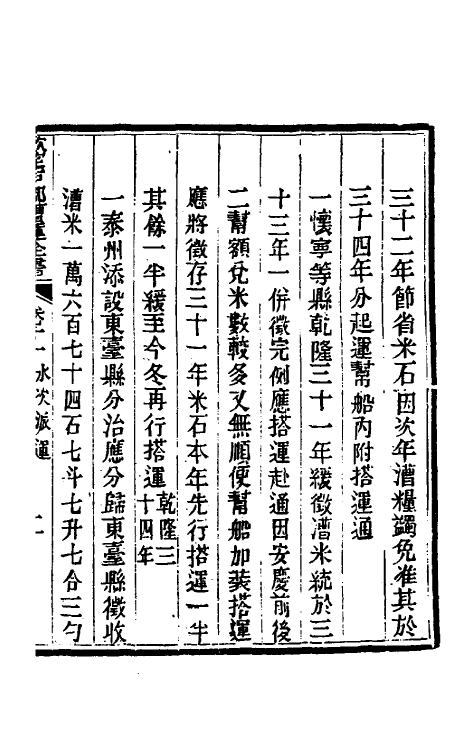 三十二年節省米石因次年漕糧蠲免准其於
三十四年分起運幫船內附搭運通
一懷寧等縣乾隆三十一年緩徵漕米統於三
十三年一併徵完例應搭運赴通因安慶前後
二幫額兌米數較多又無順便幫船加裝搭運
應將徵存三十一年米石本年先行搭運一半
其餘一半緩至今冬再行搭運乾隆三十四年
一泰州添設東臺縣分治應分歸東臺縣徵收
漕米一萬六百七十四石七斗七升七合三勺
全書 卷 水次派運